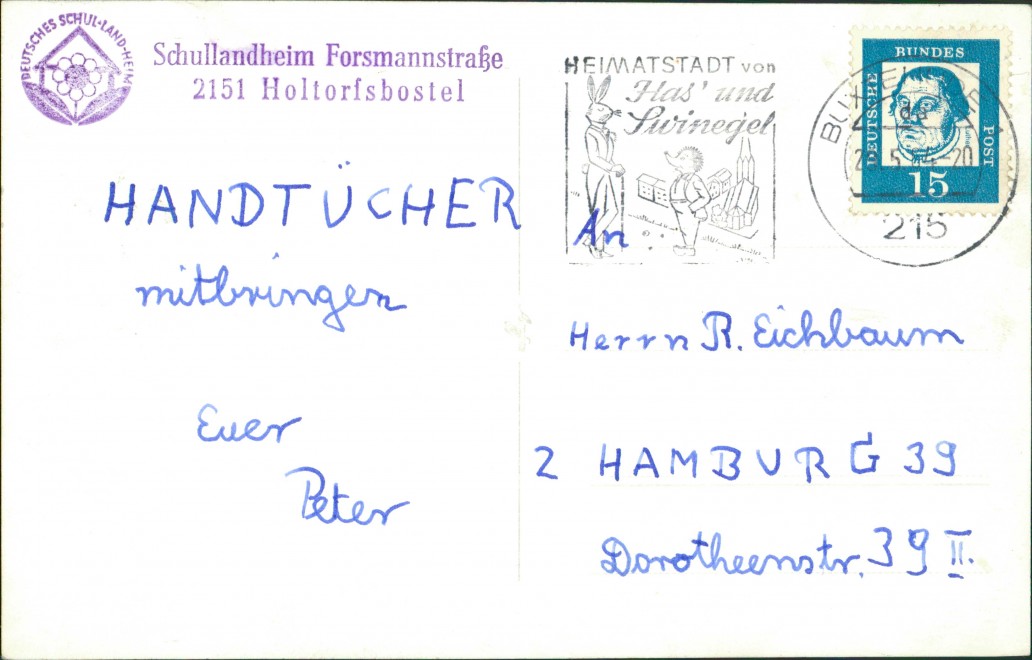 DEUTSCHES SCHUL-LAND-HEIM
Schullandheim Forsmannstraße
2151 Holtorfsbostel
HANDTÜCHER
mitbringen
Euer
Peter
HEIMATSTADT von
Has' und
Swinegel
DEUTSCHE
BUNDES
POST
15
215
An
Herrn R. Eichbaum
2 HAMBURG 39
Dorotheenstr. 39 II.